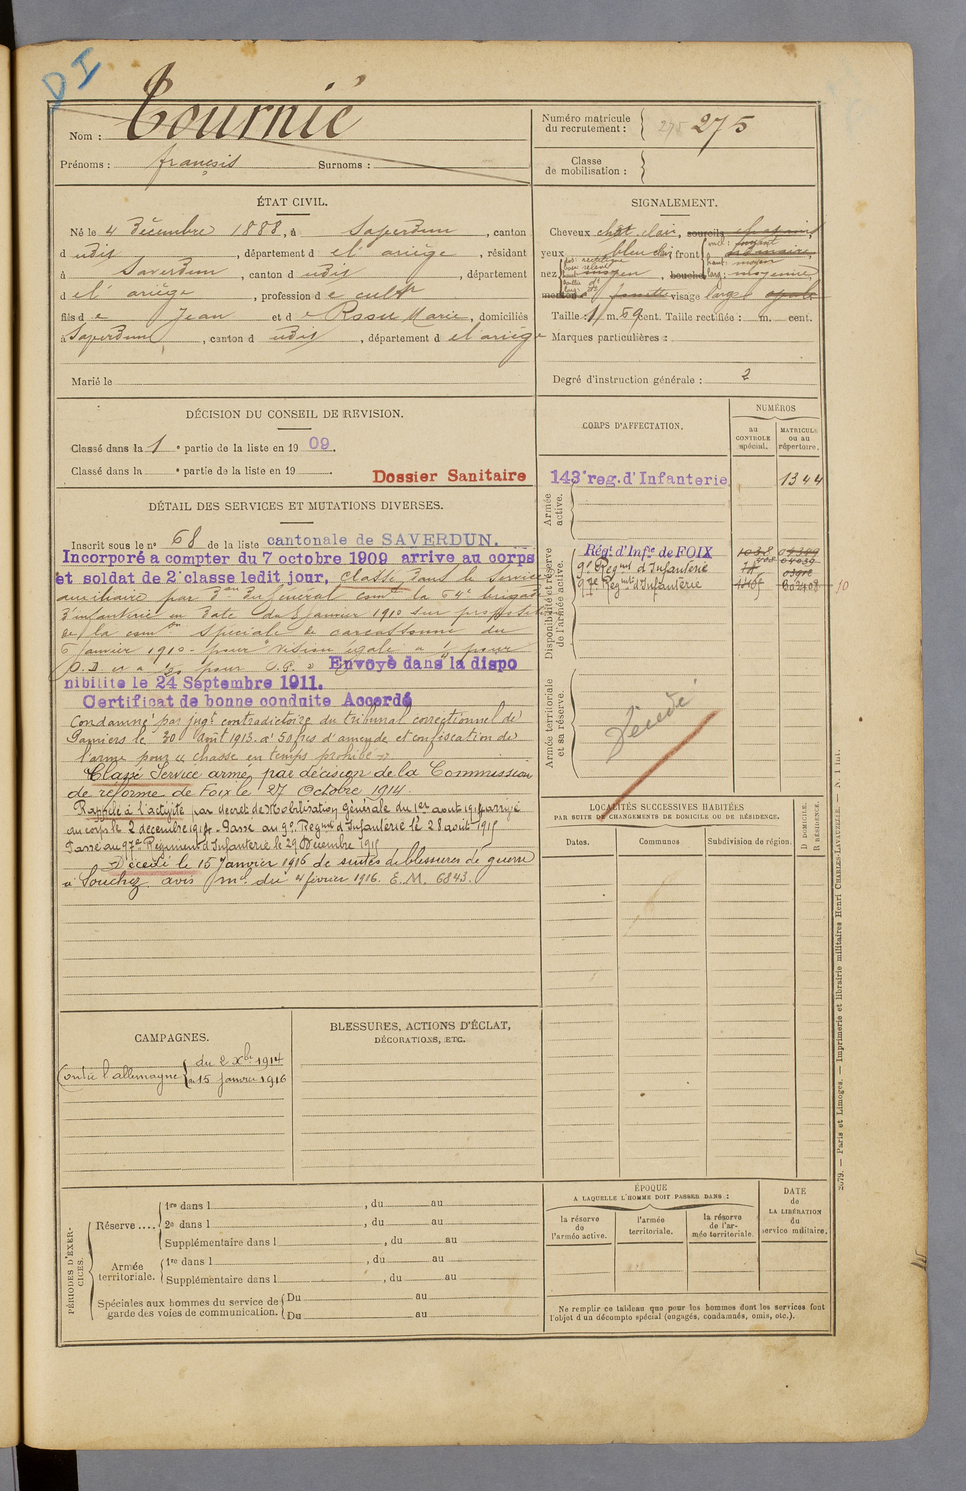 DI
Nom : Tournié
Prénoms : françois Surnoms :
Numéro matricule du recrutement : 275 275
Classe de mobilisation :
ÉTAT CIVIL.
Né le 4 Décembre 1888, à Saverdun, canton
d udit, département d e l'ariège, résidant
à Saverdun, canton d udit, département
d e l'ariège, profession d e cultr
fils d e Jean et d e Marie, domiciliés
à Saverdun, canton d udit, département d e l'ariège
Marié le
SIGNALEMENT.
Cheveux chât. clair, sourcils
yeux bleu clair, front incl: fuyant haut: moyen larg: moyenne
nez moyen, bouche
menton visage large ovale
Taille : 1 m. 59 cent. Taille rectifiée : m. cent.
Marques particulières :
Degré d'instruction générale : 2
DÉCISION DU CONSEIL DE REVISION.
Classé dans la 1e partie de la liste en 1909.
Classé dans la e partie de la liste en 19
Dossier Sanitaire
DÉTAIL DES SERVICES ET MUTATIONS DIVERSES.
Inscrit sous le no 68 de la liste cantonale de SAVERDUN.
Incorporé a compter du 7 octobre 1909 arrive au corps
et soldat de 2e classe ledit jour, classé dans le Service
auxiliaire par Don du Général comt la 64e brigade
d'infanterie en date du 8 janvier 1910 sur proposition
de la comon spéciale de carcassonne du
6 janvier 1910 - pour Vision égale a
Envoyé dans la dispo
nibilite le 24 Septembre 1911.
Certificat de bonne conduite Accordé
Condamné par jugt contradictoire du tribunal correctionnel de
Pamiers le 30 Août 1913 à 50 frcs d'amende et confiscation de
l'arme pour "chasse en temps prohibé"
Classé Service armé, par décision de la Commission
de réforme de Foix le 27 Octobre 1914.
Rappelé à l'activité par décret de Mobilisation générale du 1er août 1914 arrivé
au corps le 2 décembre 1914. Passé au 9e Regimt d'Infanterie le 28 août 1915
Passé au 97e Regiment d'Infanterie le 29 Décembre 1915
Décédé le 15 Janvier 1916 de suites de blessures de guerre
à Souchez avis mel du 4 février 1916. E.M. 6843.
CORPS D'AFFECTATION.
NUMÉROS
au CONTROLE spécial.
MATRICULE ou au répertoire.
Armée active.
143e reg. d'Infanterie 1344
Disponibilité et réserve de l'armée active.
Régt d'Infie de FOIX
9e Regmt d'Infanterie
97e Regmt d'Infanterie
Armée territoriale et sa réserve.
Décédé
LOCALITÉS SUCCESSIVES HABITÉES
PAR SUITE DE CHANGEMENTS DE DOMICILE OU DE RÉSIDENCE.
Dates. Communes. Subdivision de région.
D DOMICILE.
R RÉSIDENCE.
CAMPAGNES.
Contre l'allemagne { du 2 Xbre 1914
au 15 janvier 1916
BLESSURES, ACTIONS D'ÉCLAT,
DÉCORATIONS, ETC.
PÉRIODES D'EXERCICES.
Réserve ....
1re dans l , du au
2e dans l , du au
Supplémentaire dans l , du au
Armée territoriale.
1re dans l , du au
Supplémentaire dans l , du au
Spéciales aux hommes du service de garde des voies de communication.
Du au
Du au
ÉPOQUE
A LAQUELLE L'HOMME DOIT PASSER DANS :
la réserve de l'armée active.
l'armée territoriale.
la réserve de l'armée territoriale.
DATE de LA LIBÉRATION du service militaire.
Ne remplir ce tableau que pour les hommes dont les services font
l'objet d'un décompte spécial (engagés, condamnés, omis, etc.).
— Paris et Limoges. — Imprimerie et librairie militaires Henri CHARLES-LAVAUZELLE. —